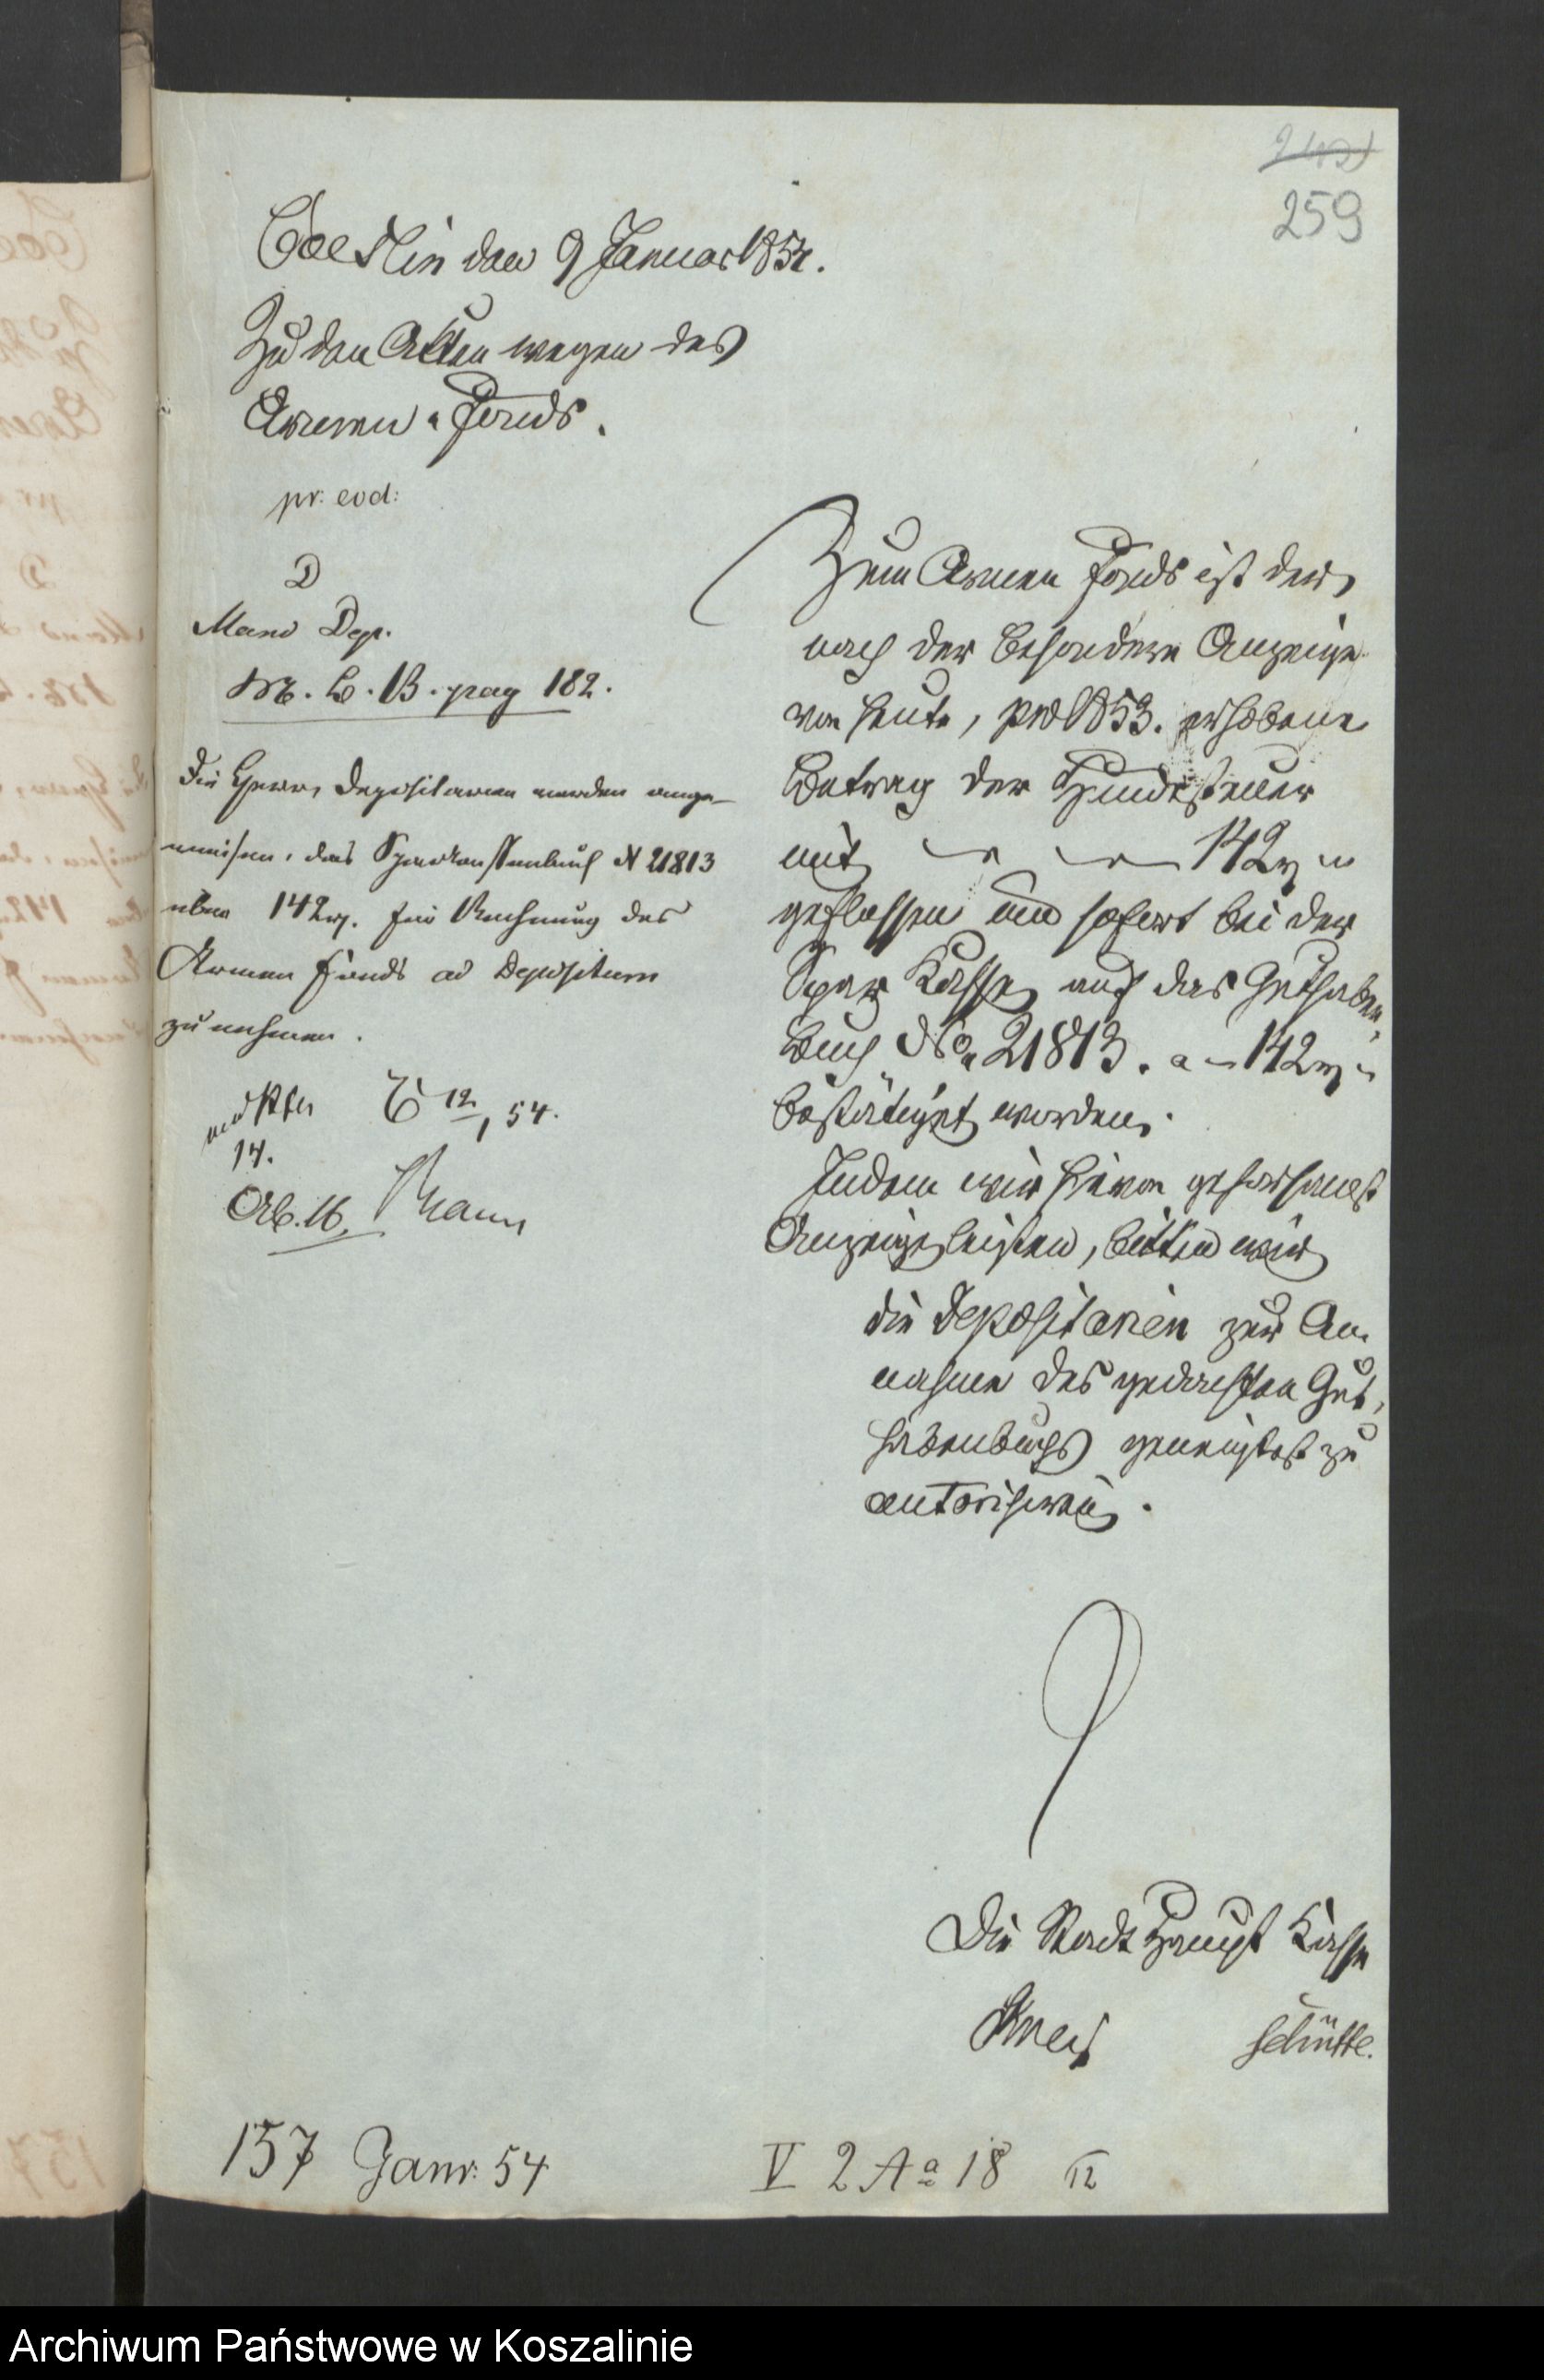 259
Coeslin den 9 Januar 1854.
Zu den Akten wegen des
Armen-Fonds.
pr. eod:
D
Mand Dep.
M. C. B. pag 182.
Die Herrn Depositarien werden ange-
wiesen, das Sparkassenbuch N 21813
über 142 rt. für Rechnung des
Armen Fonds ad Depositum
zu nehmen.
C 12/1 54.
14.
Ab. 16.
Zum Armen Fonds ist der,
nach der besondern Anzeige
von heute, pro 1853. erhobene
Betrag der Hundesteuer
mit 142 rt
geflossen und sofort bei der
Spar Kasse auf das Guthaben-
buch No. 21813. a 142 rt
bestätigt worden.
Indem wir hievon gehorsamst
Anzeige leisten, bitten wir
die Depositarien zur An-
nahme des gedachten Gut-
habenbuchs geneigtest zu
autorisiren.
Die Stadt Haupt Kasse
Schütte.
157 Janr. 54
V 2 A a 18
Archiwum Państwowe w Koszalinie